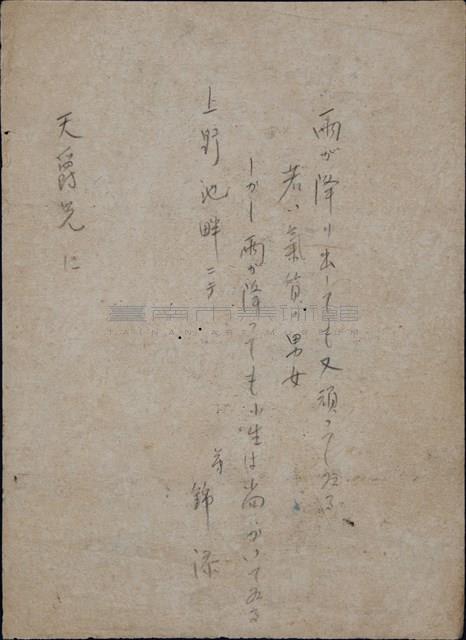 雨が降り出しても又頑つてゐる
若い氣質の男女
しかし雨が降つても小生は尚かいて居る
上野池畔ニテ
弟 錦添
天爵兄に
臺南市美術館
TAINAN ART MUSEUM